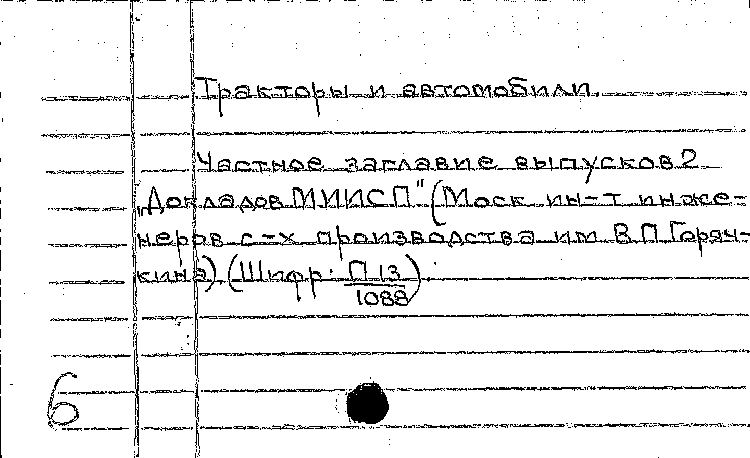 Тракторы и автомобили.
Частное заглавие выпусков 2
„Докладов МИИСП" (Моск ин-т инже-
неров с-х производства им В.П Горяч-
кина). (Шифр: П 13/1088).
6